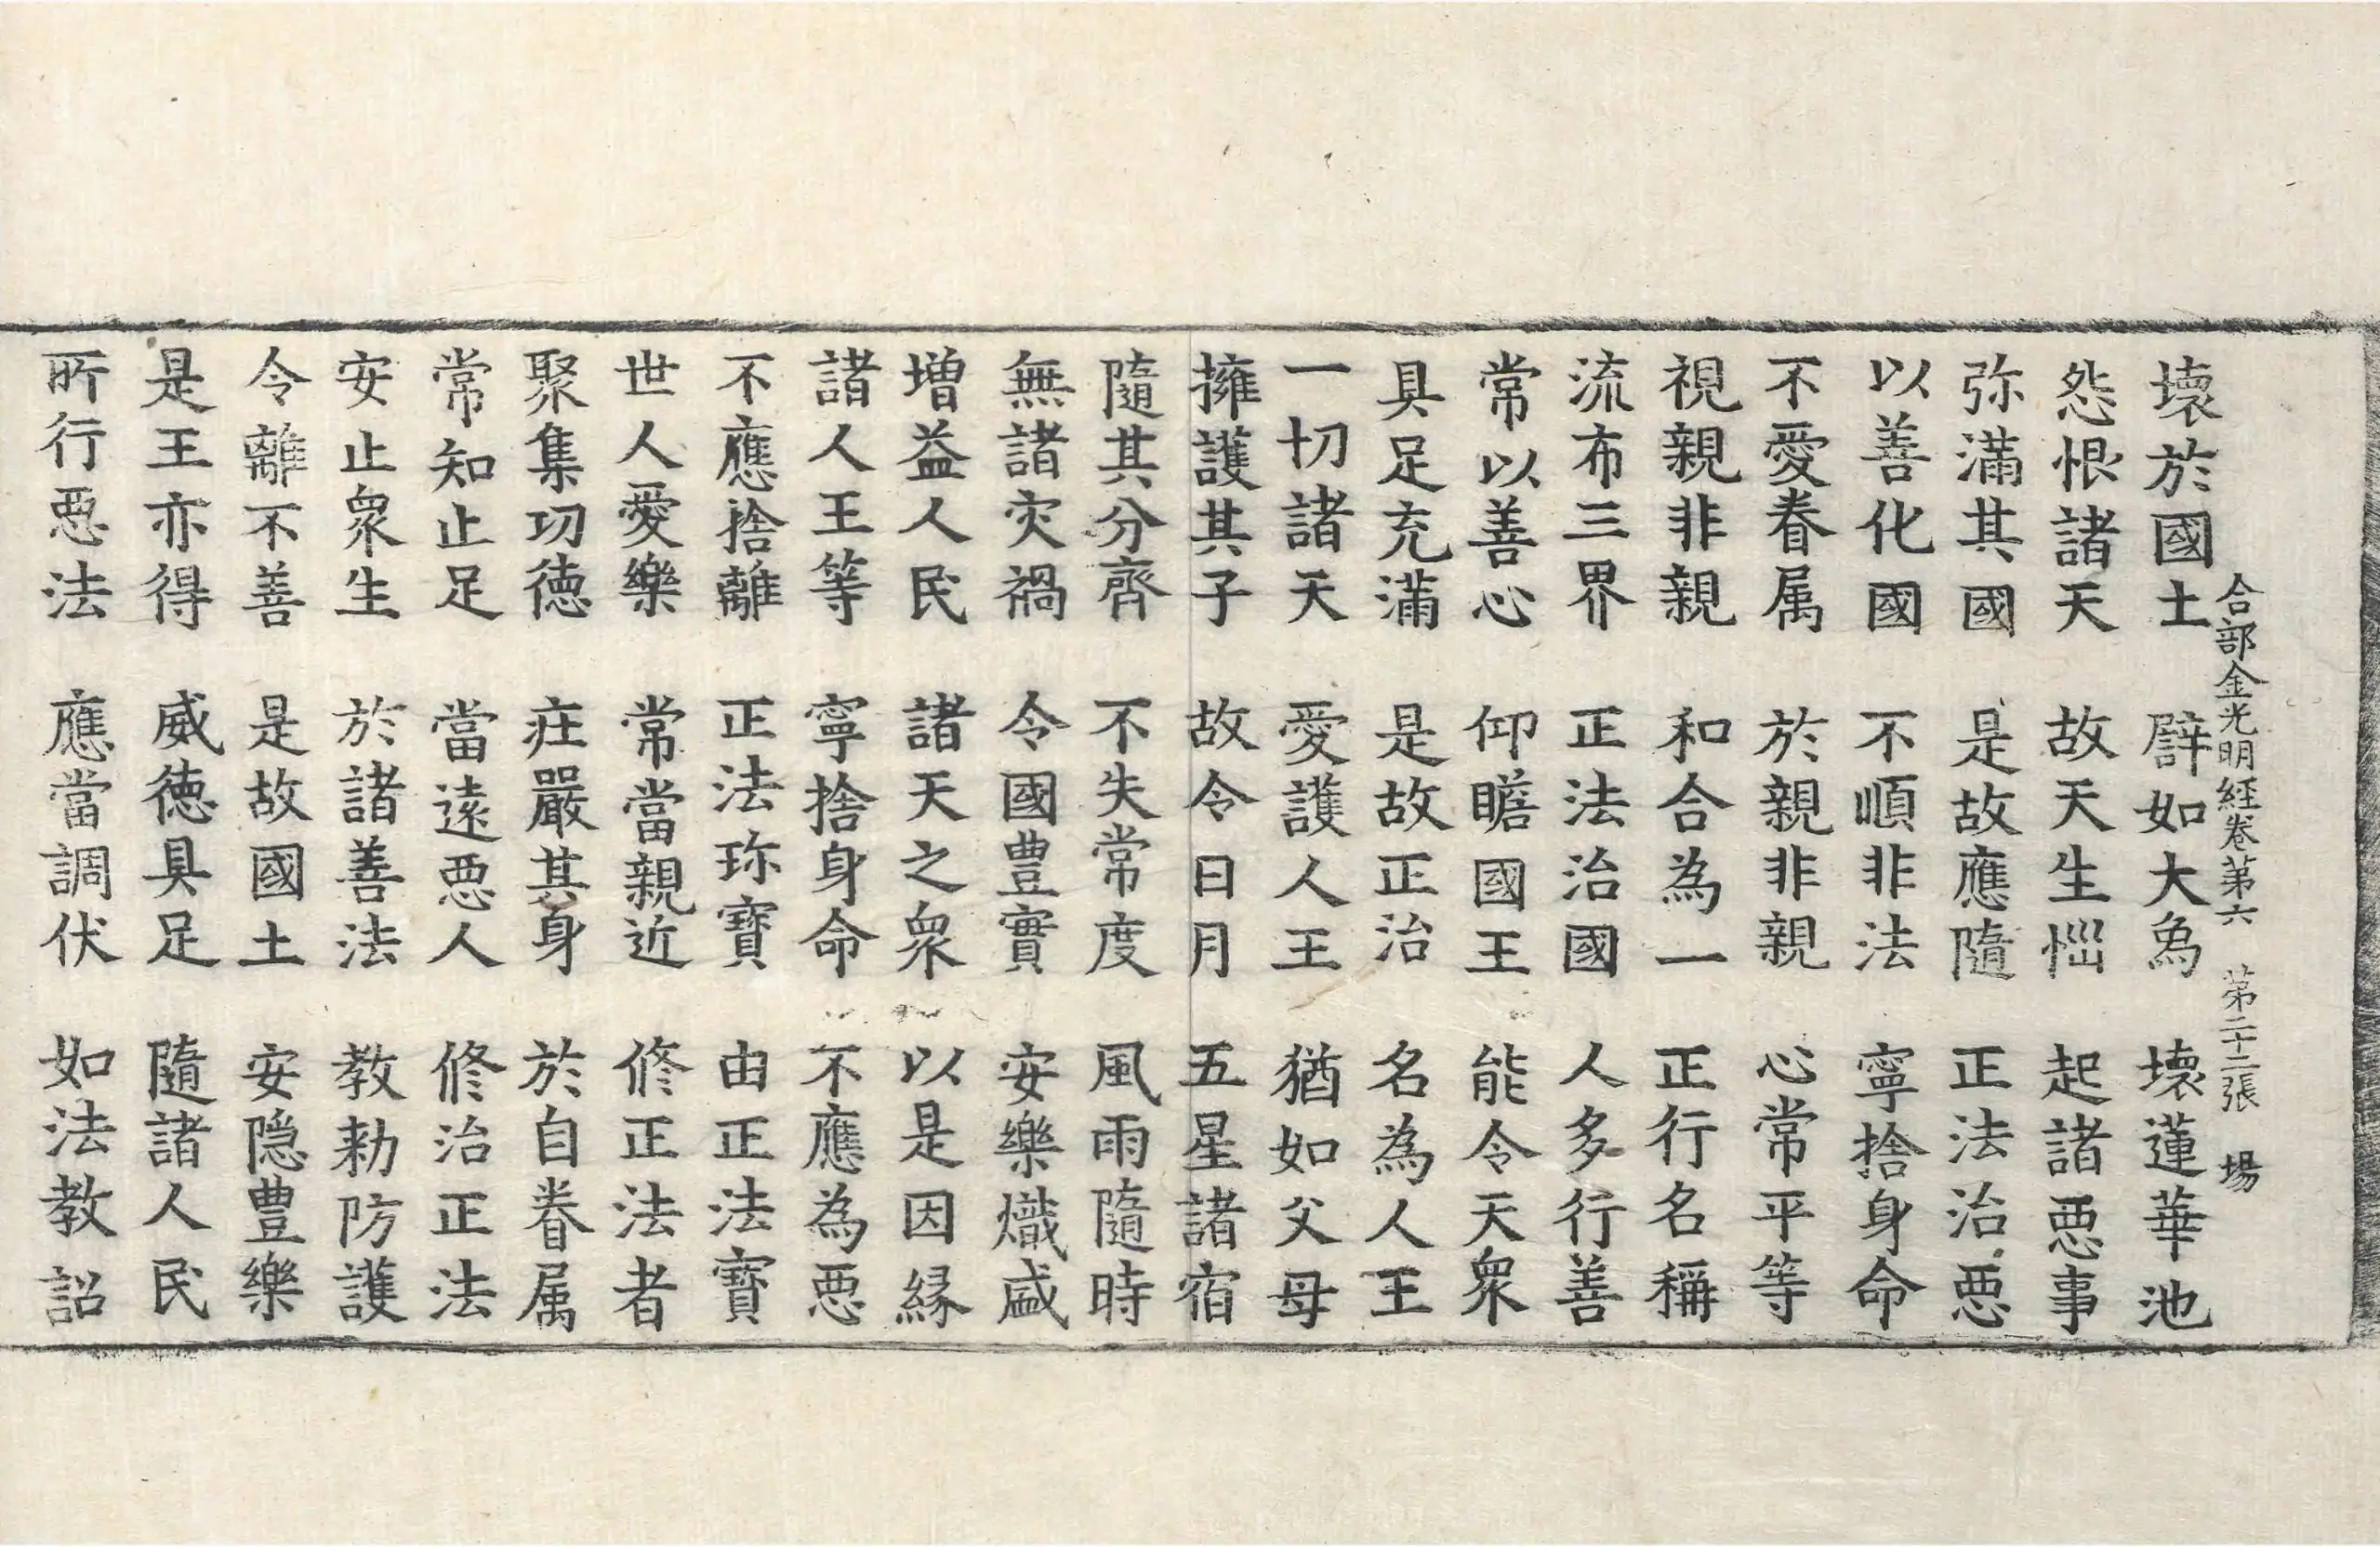 合部金光明経卷第六 第二十二張 場
壊於國土 譬如大爲 壊蓮華池
怨恨諸天 故天生惱 起諸悪事
弥滿其國 是故應隨 正法治悪
以善化國 不順非法 寧捨身命
不愛眷属 於親非親 心常平等
視親非親 和合為一 正行名稱
流布三界 正法治國 人多行善
常以善心 仰瞻國王 能令天衆
具足充滿 是故正治 名為人王
一切諸天 愛護人王 猶如父母
擁護其子 故令日月 五星諸宿
隨其分齊 不失常度 風雨隨時
無諸灾禍 令國豊實 安樂熾盛
增益人民 諸天之衆 以是因縁
諸人王等 寧捨身命 不應為悪
不應捨離 正法珎寶 由正法寶
世人愛樂 常當親近 修正法者
聚集功徳 庄嚴其身 於自眷属
常知止足 當遠悪人 修治正法
安止衆生 於諸善法 教勑防護
令離不善 是故國土 安隠豊樂
是王亦得 威徳具足 隨諸人民
所行悪法 應當調伏 如法教詔